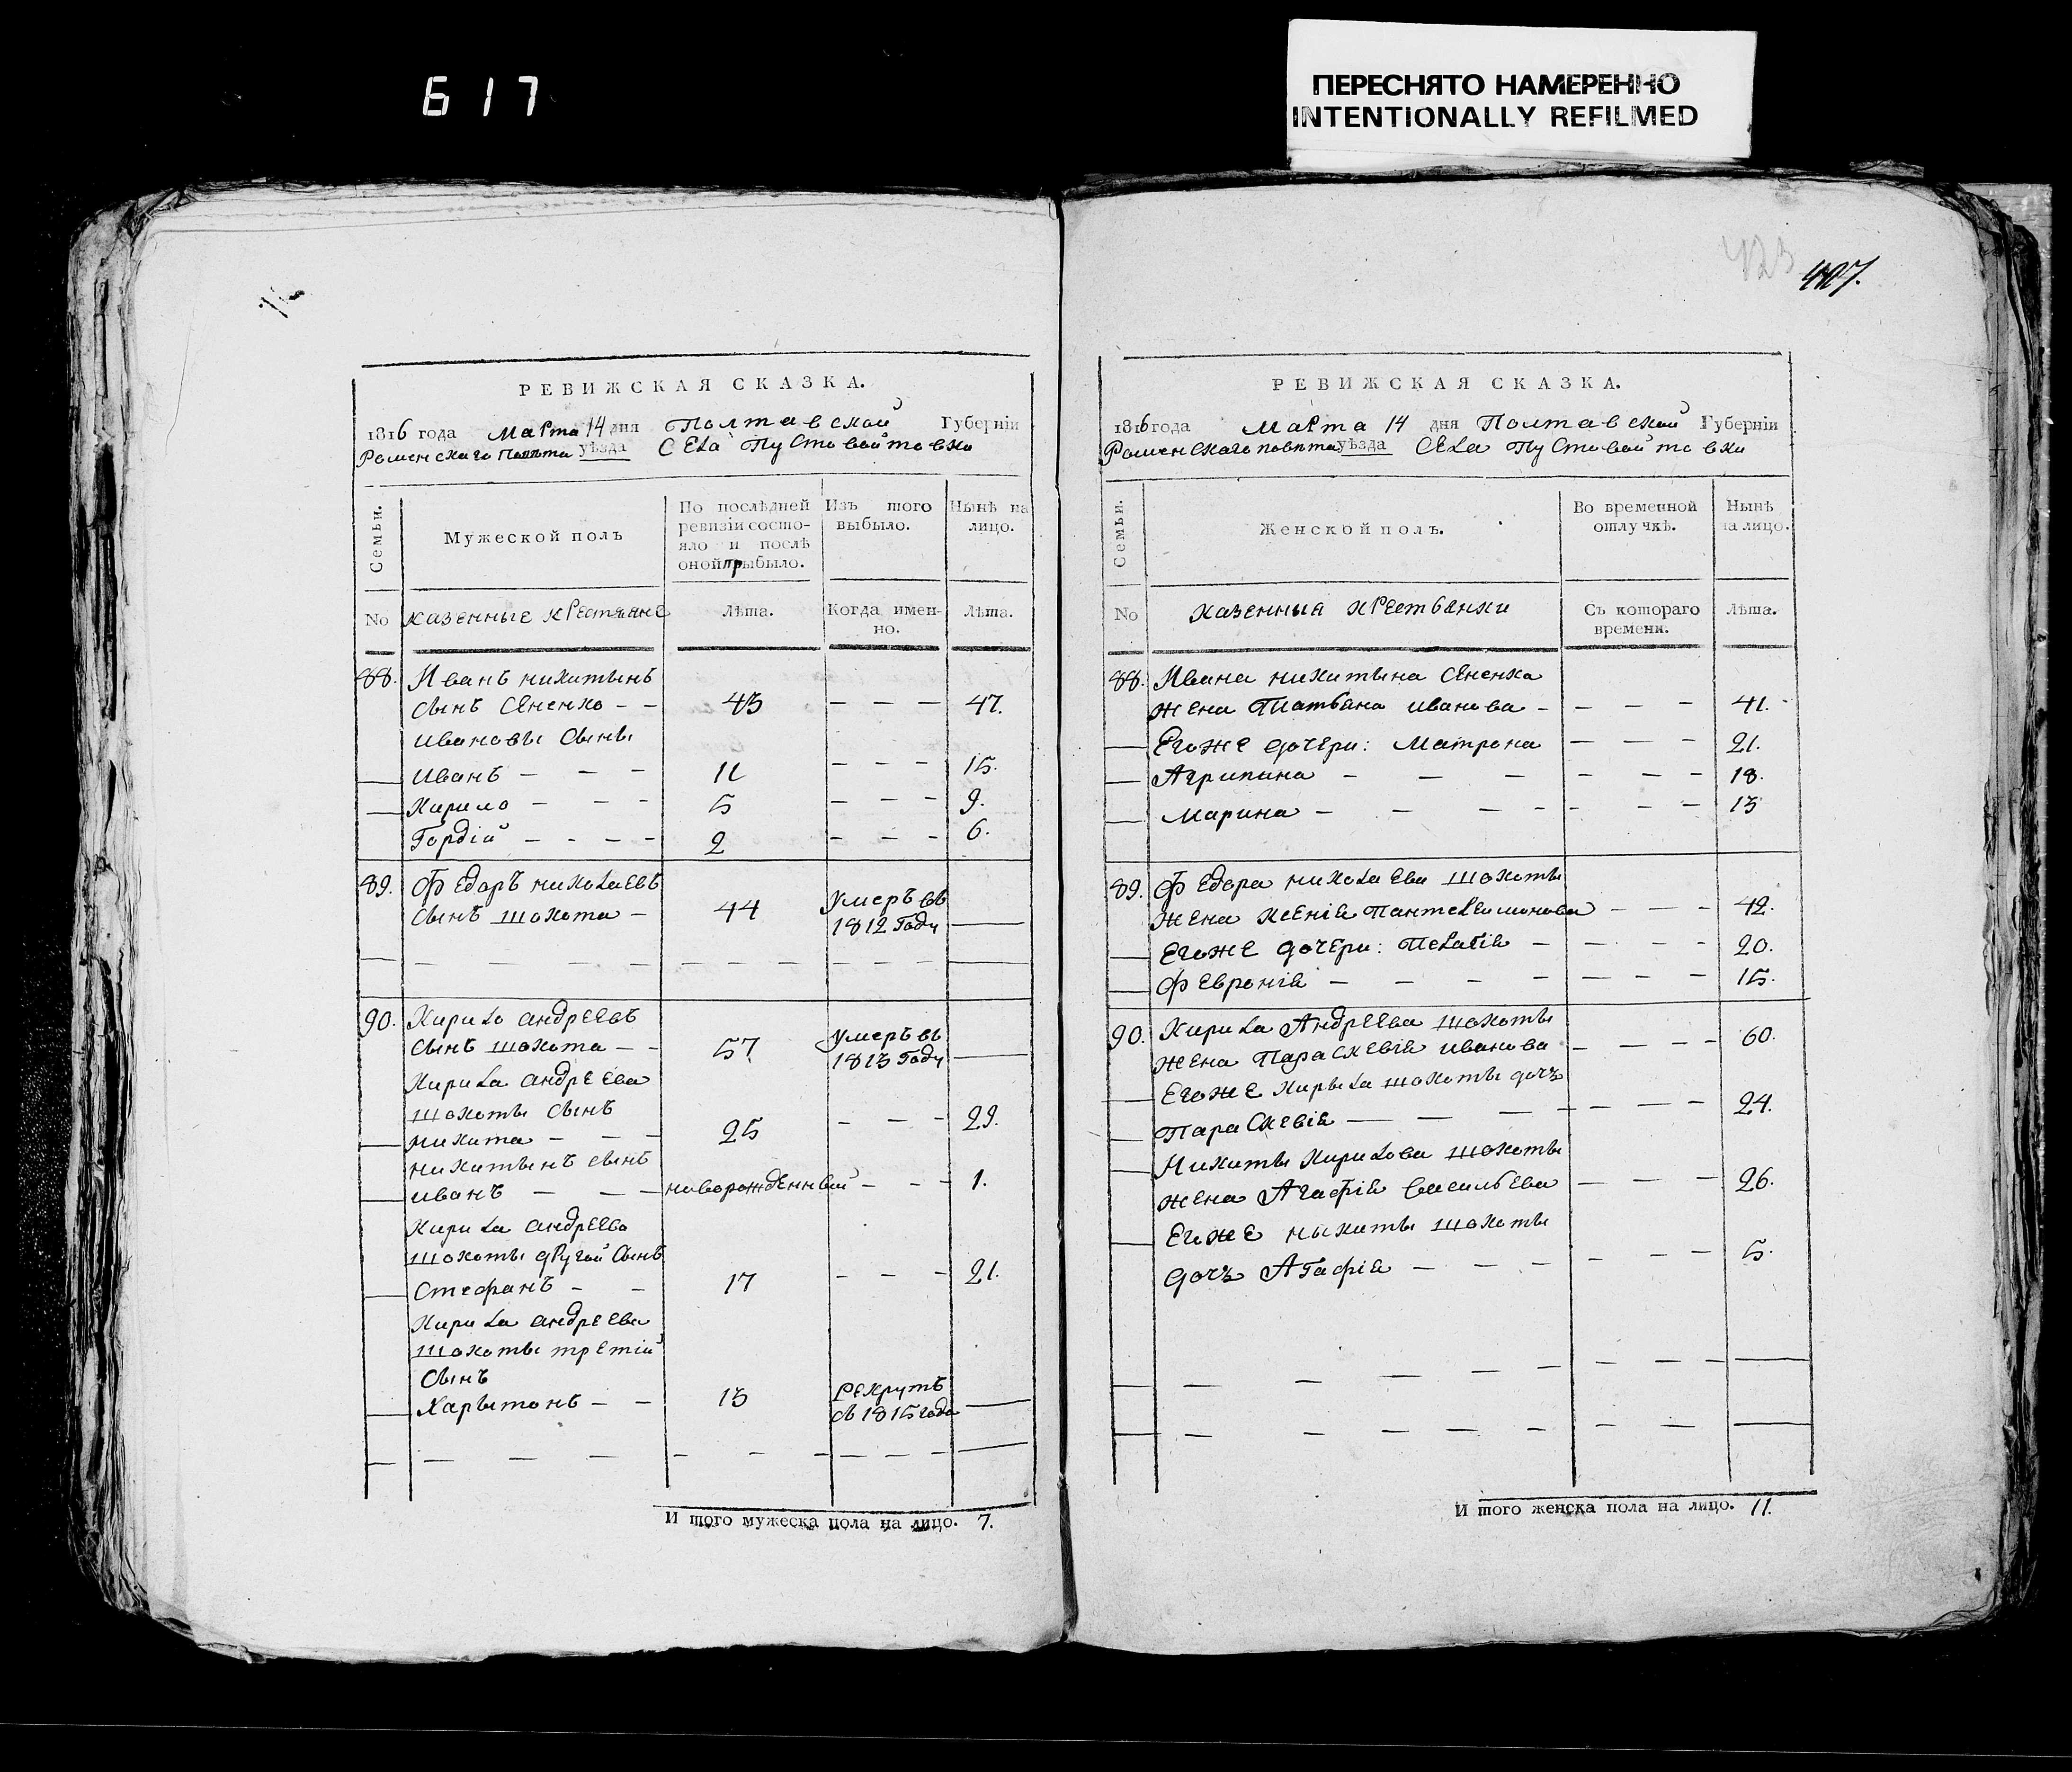 617
ПЕРЕСНЯТО НАМЕРЕННО
INTENTIONALLY REFILMED
РЕВИЖСКАЯ СКАЗКА.
1816 года Марта 14 дня Полтавской Губерніи
Роменскаго Повѣта уѣзда Села Пустовойтовки
Семьи.
Мужеской полъ
По послѣдней ревизіи состояло и послѣ оной прыбыло.
Изъ того выбыло.
Нынѣ на лицо.
No казенные крестьяне Лѣта. Когда именно. Лѣта.
88. Иванъ никитынъ
сынъ Сененко - - 43 - - - 47.
ивановы сыны
иванъ - - - 11 - - - 15.
Кирило - - - 5 - - - 9.
Гордій - - - - 2 - - - 6.
89. Федоръ николаевъ Умеръ въ
сынъ шокота - 44 1812 Году
90. Кирило андреевъ Умеръ въ
сынъ шокота - - 57 1813 Году
Кирила андреева
шокоты сынъ
никита - - - 25 - - - 29.
никитынъ сынъ
иванъ - - - новорожденный - - - 1.
Кирила андреева
шокоты другой сынъ
стефанъ - - 17 - - - 21.
Кирила андреева
шокоты третій
сынъ
Харытонъ - - 13 рекрутъ
съ 1815 года
И того мужеска пола на лицо. 7.
423
427.
РЕВИЖСКАЯ СКАЗКА.
1816 года Марта 14 дня Полтавской Губерніи
Роменскаго повѣта уѣзда Села Пустовойтовки
Семьи.
Женской полъ.
Во временной отлучкѣ.
Нынѣ на лицо.
No казенныя крестьянки Съ котораго времени. Лѣта.
88. Ивана никитына Сененка
жена Татьяна иванова - - - - 41.
Егоже дочери: Матрона - - - 21.
Агрипина - - - - - - 18.
Марина - - - - - - - 13
89. Федора николаева шокоты
жена Ксенія Пантелимонова - - - 42.
Егоже дочери: Пелагія - - - - 20.
Февронія - - - - - - - - 15.
90. Кирила Андреева шокоты
жена Параскевія иванова - - - - 60.
Егоже Кирыла шокоты дочь
Параскевія - - - - - - - 24.
Никиты Кирилова шокоты
жена Агафія васильева - - - 26.
Егоже никиты шокоты
дочь Агафія - - - - - - - 5.
И того женска пола на лицо. 11.